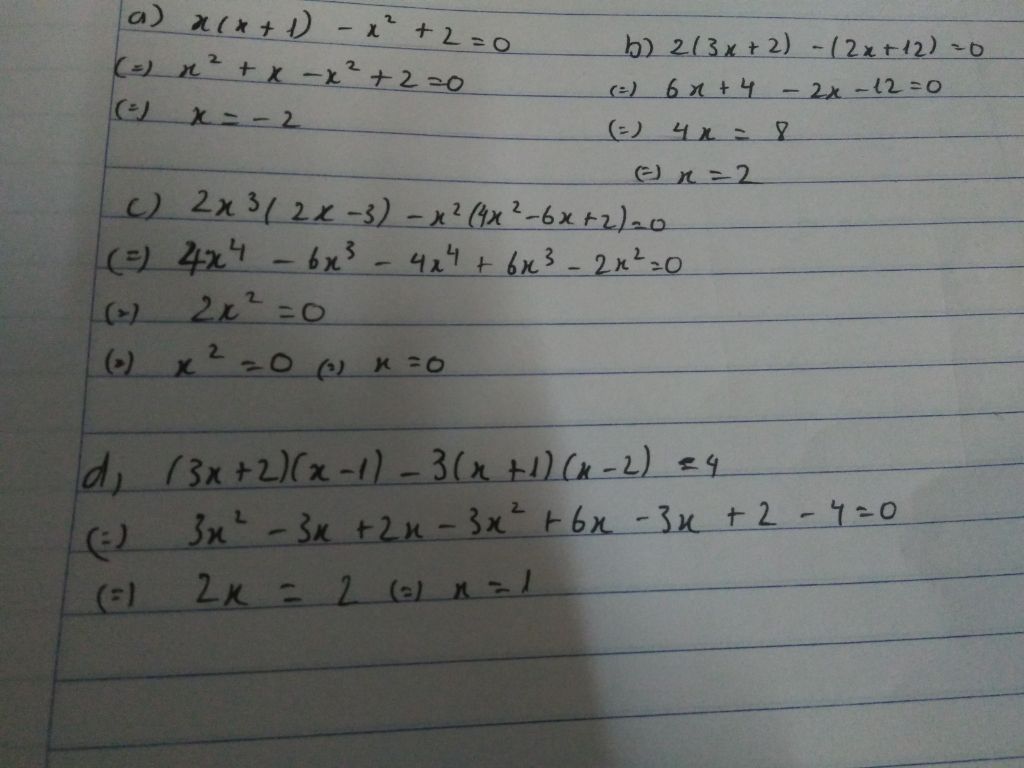 a) x(x+1) - x² + 2 = 0
(=) x² + x - x² + 2 = 0
(=) x = -2
b) 2(3x+2) - (2x+12) = 0
(=) 6x + 4 - 2x - 12 = 0
(=) 4x = 8
(=) x = 2
c) 2x³(2x-3) - x²(4x²-6x+2) = 0
(=) 4x⁴ - 6x³ - 4x⁴ + 6x³ - 2x² = 0
(=) 2x² = 0
(=) x² = 0 (=) x = 0
d, (3x+2)(x-1) - 3(x+1)(x-2) = 4
(=) 3x² - 3x + 2x - 3x² + 6x - 3x + 2 - 4 = 0
(=) 2x = 2 (=) x = 1